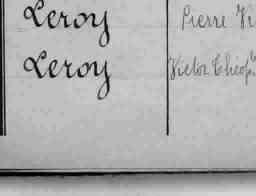 Leroy Pierre Vi
Leroy Victor Théop